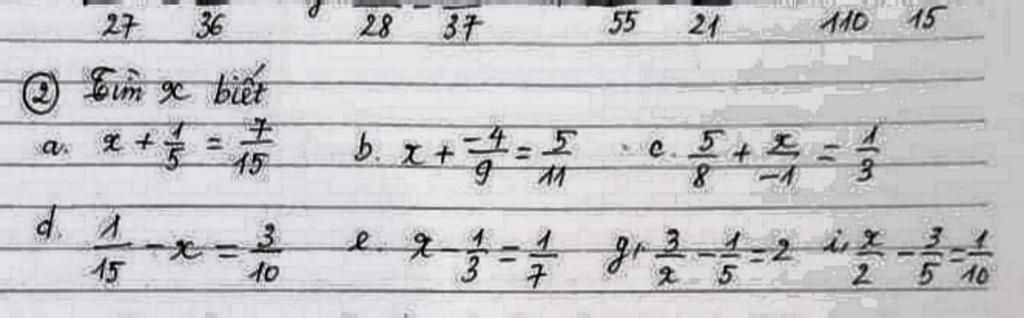 27 36 28 37 55 21 110 15
② Tìm x biết
a. x + 1/5 = 7/15 b. x + -4/9 = 5/11 c. 5/8 + x/-1 = 1/3
d. 1/15 - x = 3/10 e. x - 1/3 = 1/7 g, 3/x - 1/5 = 2 i, x/2 - 3/5 = 1/10